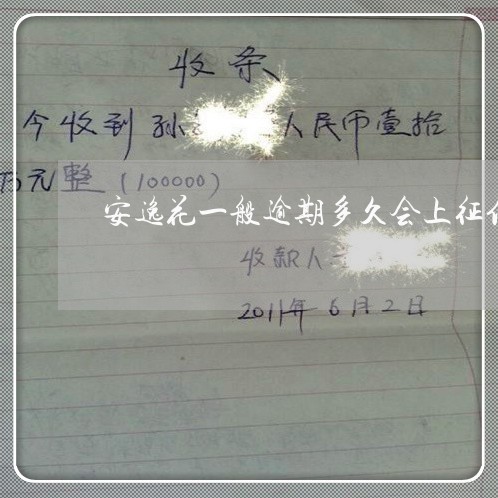 收条
今收到孙 人民币壹拾
万元整（100000）
安逸花一般逾期多久会上征信
收款人
2011年6月2日